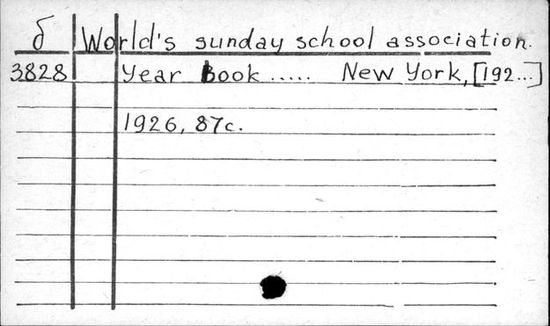 δ World's sunday school association.
3828 Year Book ..... New York, [192...]
1926, 87c.